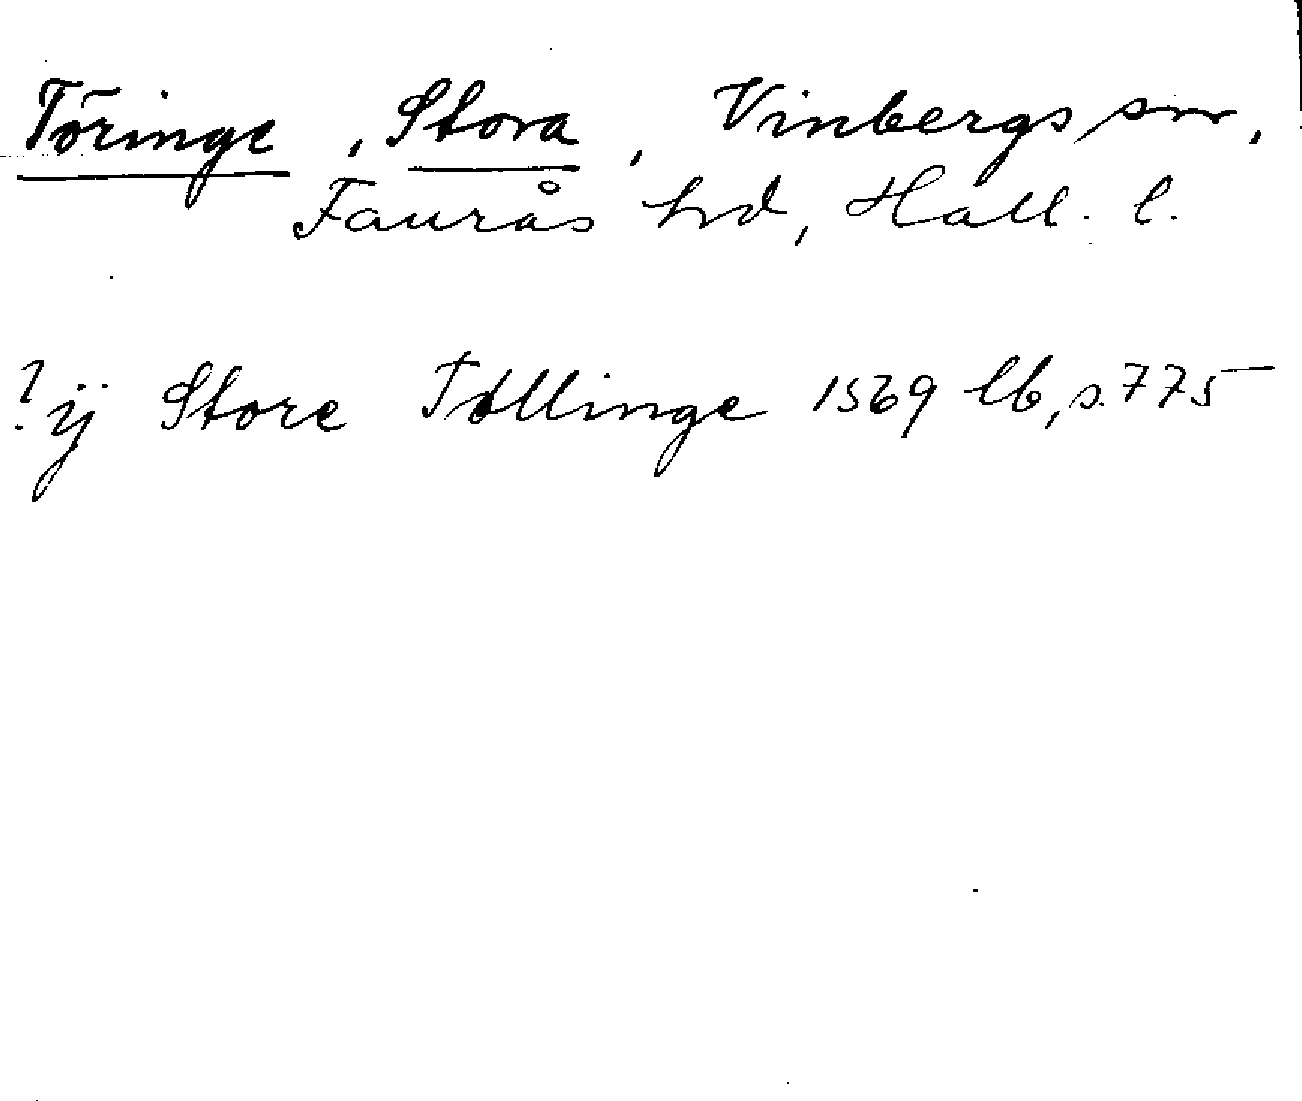 Töringe, Stora, Vinbergs sn,
Faurås hd, Hall. l.
? ÿ Store Tøllinge 1569 lb, s. 775